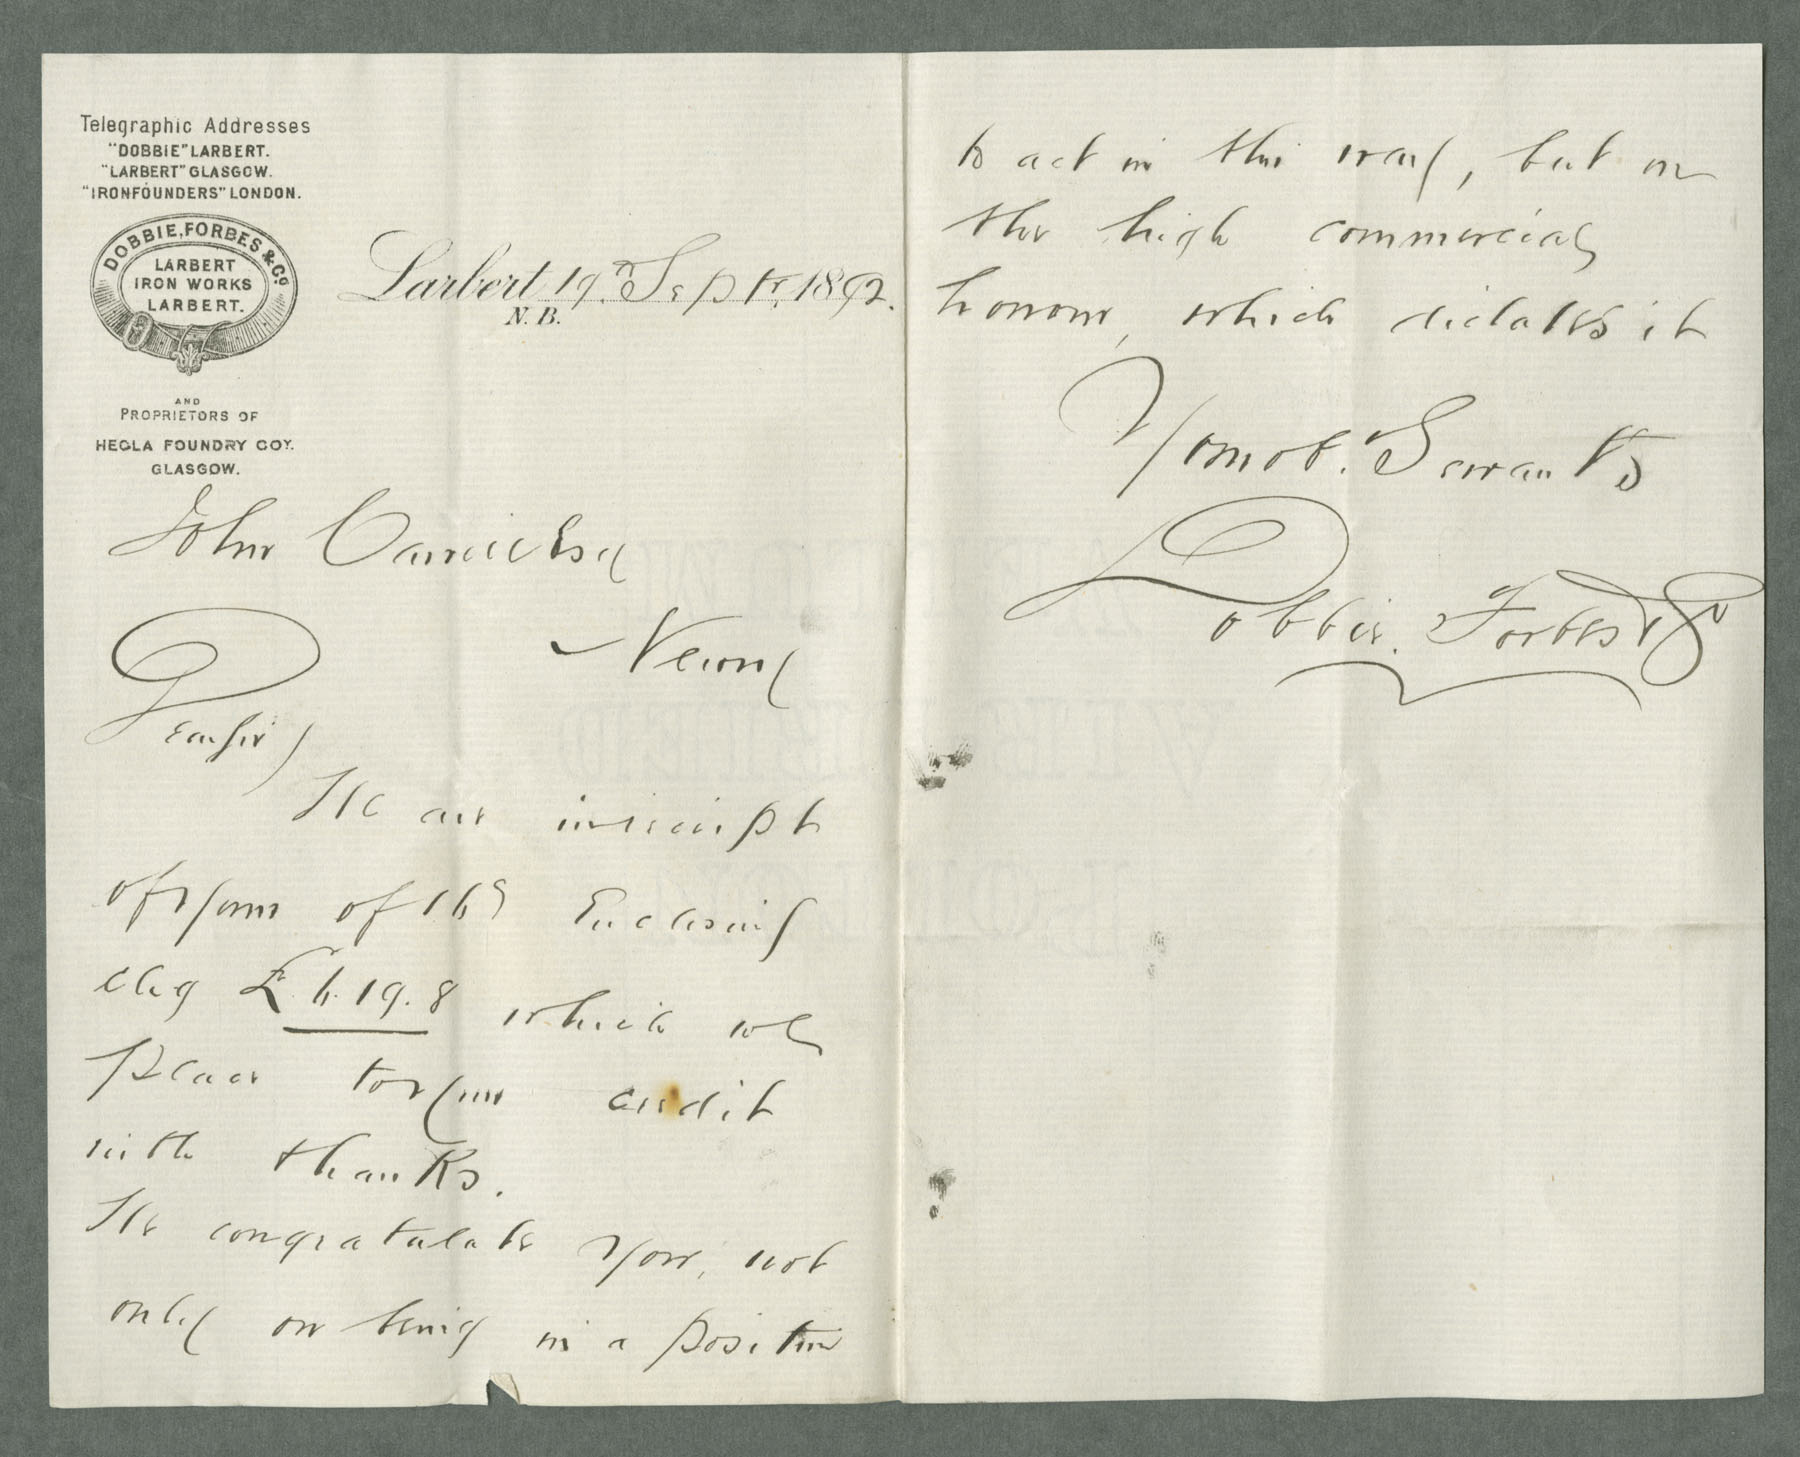 Telegraphic Addresses
"DOBBIE" LARBERT.
"LARBERT" GLASGOW.
"IRONFOUNDERS" LONDON.
DOBBIE, FORBES & Co.
LARBERT
IRON WORKS
LARBERT.
Larbert 19th Septr. 1892.
N. B.
AND
PROPRIETORS OF
HECLA FOUNDRY COY.
GLASGOW.
John Esq
Newry
Dear Sir
We are in receipt
of your of 16th Enclosing
chq £ 19. 8 which we
place to your credit
with thanks.
We congratulate you, not
only on being in a position
to act in this way, but on
the high commercial
honour, which dictates it
Your ob. Servants
Dobbie. Forbes & Co